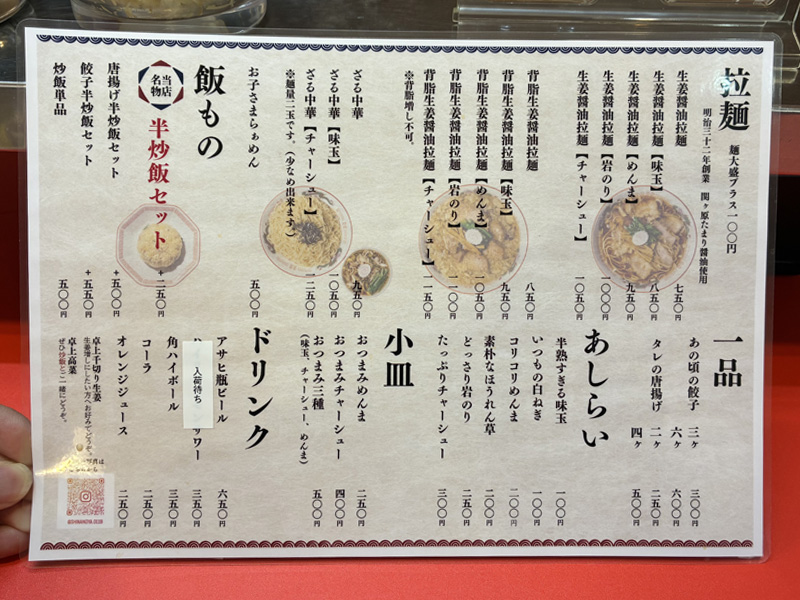 拉麺
麺大盛プラス一〇〇円
明治三十二年創業 関ヶ原たまり醤油使用
生姜醤油拉麺 七五〇円
生姜醤油拉麺【味玉】 八五〇円
生姜醤油拉麺【めんま】 九五〇円
生姜醤油拉麺【岩のり】 一〇〇〇円
生姜醤油拉麺【チャーシュー】 一〇五〇円
背脂生姜醤油拉麺 八五〇円
背脂生姜醤油拉麺【味玉】 九五〇円
背脂生姜醤油拉麺【めんま】 一〇五〇円
背脂生姜醤油拉麺【岩のり】 一一〇〇円
背脂生姜醤油拉麺【チャーシュー】 一一五〇円
※背脂増し不可。
ざる中華 九五〇円
ざる中華【味玉】 一〇五〇円
ざる中華【チャーシュー】 一二五〇円
※麺量二玉です。(少なめ出来ます。)
お子さまらぁめん 五〇〇円
飯もの
当店名物
半炒飯セット +二五〇円
唐揚げ半炒飯セット +五〇〇円
餃子半炒飯セット +五五〇円
炒飯単品 五〇〇円
一品
あの頃の餃子 三ヶ 三〇〇円
六ヶ 六〇〇円
タレの唐揚げ 二ヶ 二五〇円
四ヶ 五〇〇円
あしらい
半熟すぎる味玉 一〇〇円
いつもの白ねぎ 一〇〇円
コリコリめんま 二〇〇円
素朴なほうれん草 二〇〇円
どっさり岩のり 二五〇円
たっぷりチャーシュー 三〇〇円
小皿
おつまみめんま 二五〇円
おつまみチャーシュー 四〇〇円
おつまみ三種 五〇〇円
(味玉、チャーシュー、めんま)
ドリンク
アサヒ瓶ビール 六五〇円
入荷待ち
ワー 三五〇円
角ハイボール 三五〇円
コーラ 二五〇円
オレンジジュース 二五〇円
卓上千切り生姜
生姜増しにしたい方へお好みでどうぞ。
卓上高菜
ぜひ炒飯とご一緒にどうぞ。